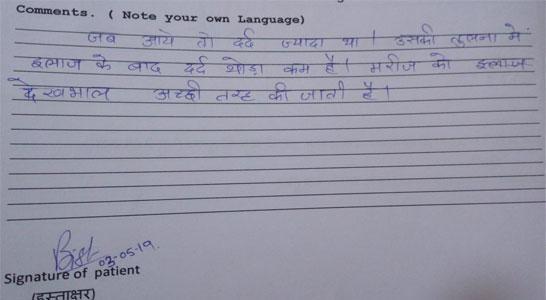 Comments. ( Note your own Language)
जब आये तो दर्द ज्यादा था । उसकी तुलना में
इलाज के बाद दर्द थोड़ा कम है। मरीज को इलाज
देखभाल अच्छी तरह की जाती है।
03-05-19.
Signature of patient
(हस्ताक्षर)